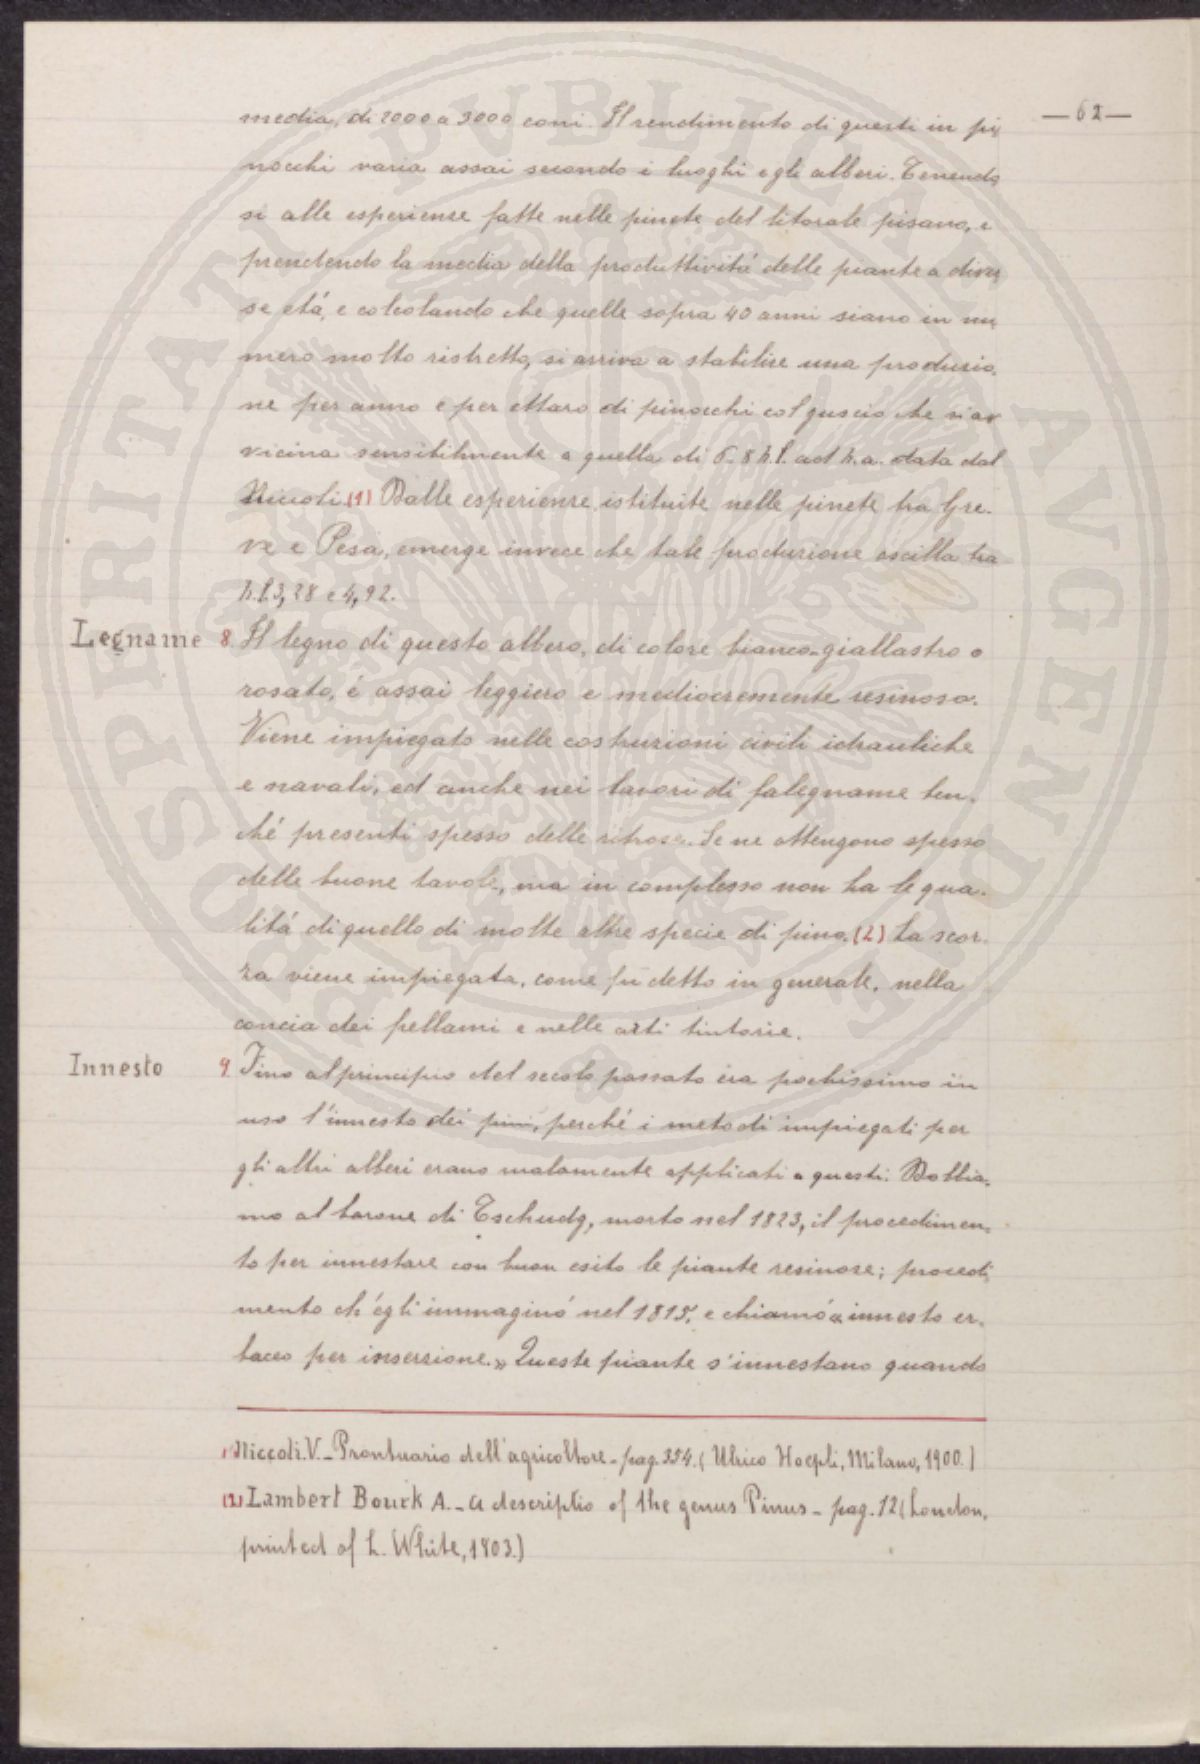 — 62 —
media, di 2000 a 3000 coni. Il rendimento di questi in pi
nocchi varia assai secondo i luoghi e gli alberi. Tenendo
si alle esperienze fatte nelle pinete del litorale pisano, e
prendendo la media della produttivitá delle piante a diver
se etá, e calcolando che quelle sopra 40 anni siano in nu
mero molto ristretto, si arriva a stabilire una produzio
ne per anno e per ettaro di pinocchi col guscio che si av
vicina sensibilmente a quella di 6-8 h.l. ad h.a. data dal
Niccoli.(1) Dalle esperienze istituite nelle pinete tra Gre-
ve e Pesa, emerge invece che tale produzione oscilla tra
h.l. 3,28 e 4,92.
Legname 8. Il legno di questo albero, di colore bianco-giallastro o
rosato, é assai leggiero e mediocremente resinoso.
Viene impiegato nelle costruzioni civili idrauliche
e navali, ed anche nei lavori di falegname ben-
ché presenti spesso delle ritrose. Se ne ottengono spesso
delle buone tavole, ma in complesso non ha le qua-
litá di quello di molte altre specie di pino.(2) La scor-
za viene impiegata, come fu detto in generale, nella
concia dei pellami e nelle arti tintorie.
Innesto 9. Fino al principio del secolo passato era pochissimo in
uso l'innesto dei pini, perché i metodi impiegati per
gli altri alberi erano malamente applicati a questi. Dobbia-
mo al barone di Tschudy, morto nel 1823, il procedimen-
to per innestare con buon esito le piante resinose; procedi
mento ch'égli immaginó nel 1815, e chiamó « innesto er-
baceo per inserzione.» Queste piante s'innestano quando
(1) Niccoli.V.- Prontuario dell'agricoltore - pag. 354. (Ulrico Hoepli, Milano, 1900.)
(2) Lambert Bourk A. - a descriptio of the genus Pinus - pag. 12 (London,
printed of L. White, 1803.)
PVBLICAE AVGENDAE
PROSPERITATI